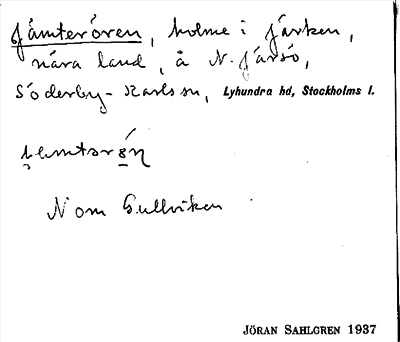 Jämterören, holme i Järken,
nära land, å N. Järsö,
Söderby-Karls sn, Lyhundra hd, Stockholms l.
Nom Gullviken
JÖRAN SAHLGREN 1937